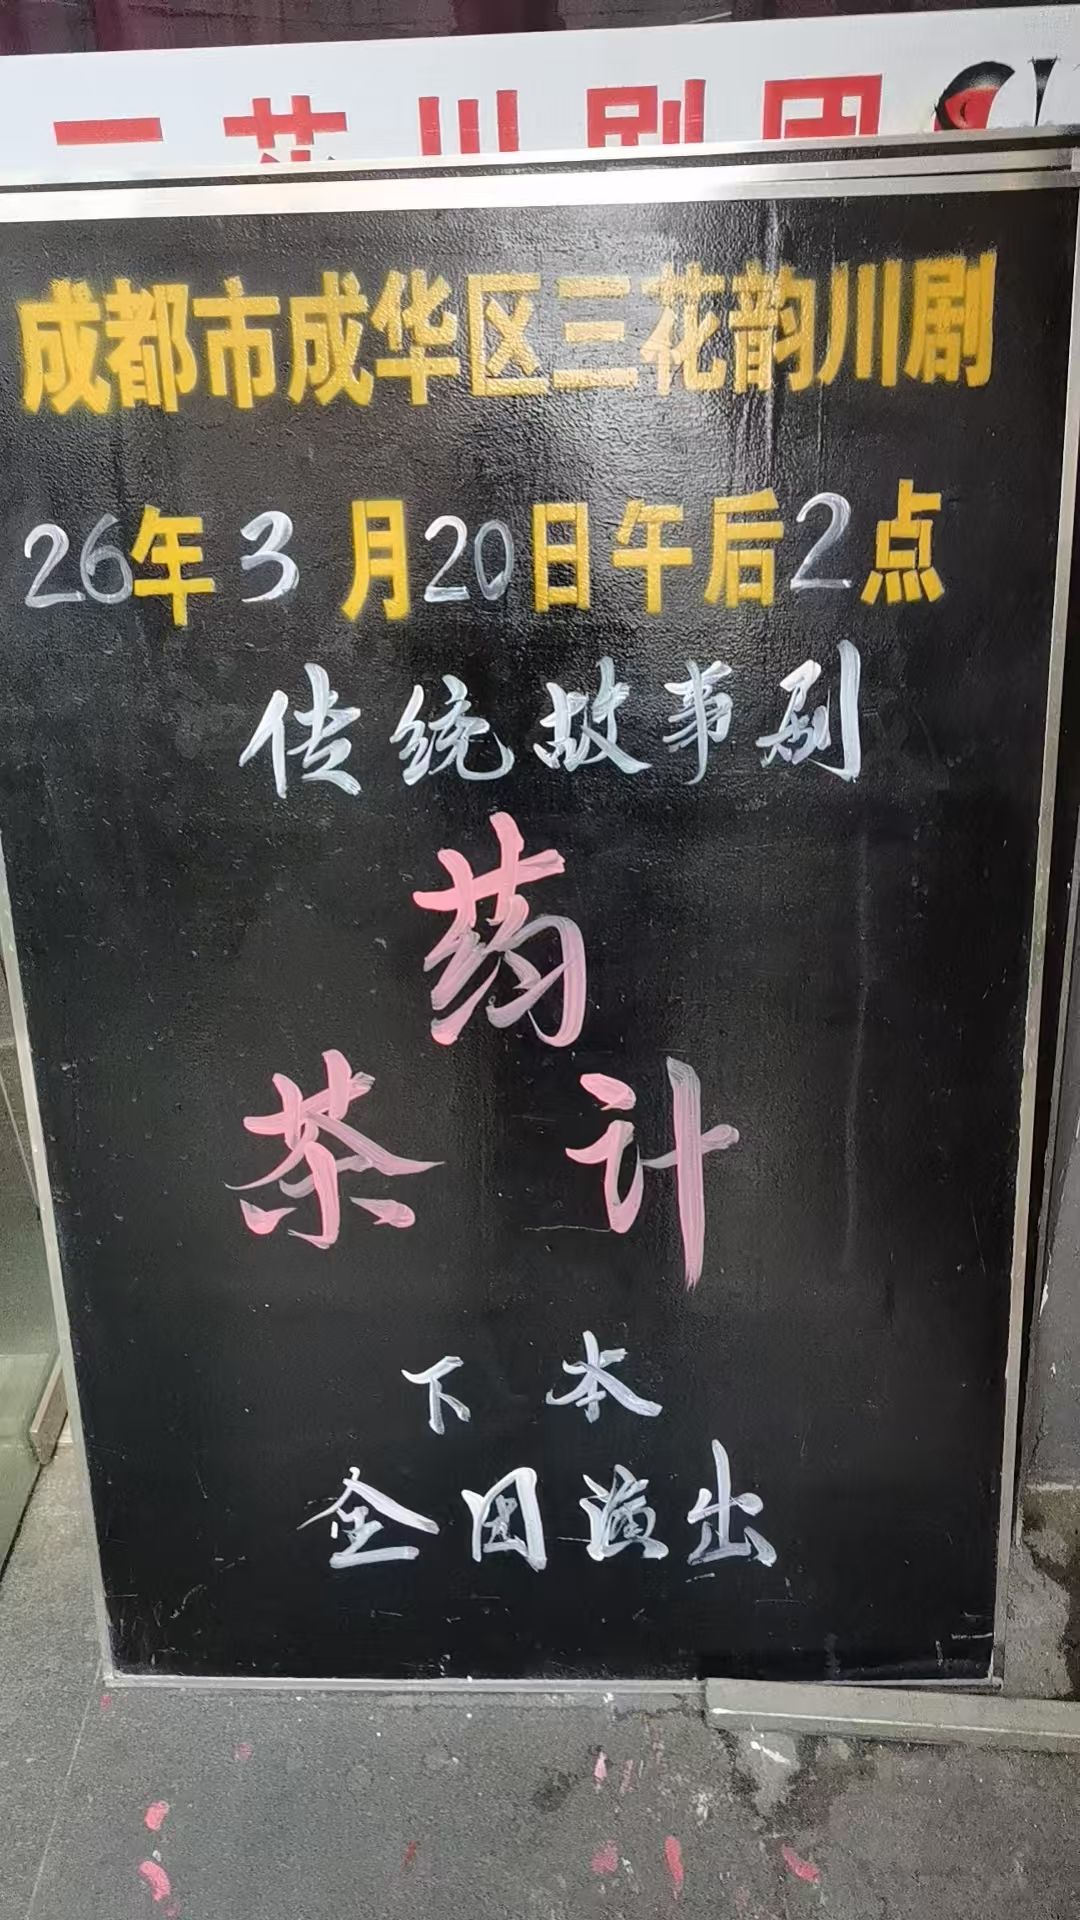 三花川剧团
成都市成华区三花韵川剧
26年3月20日午后2点
传统故事剧
药
茶计
下本
全团演出